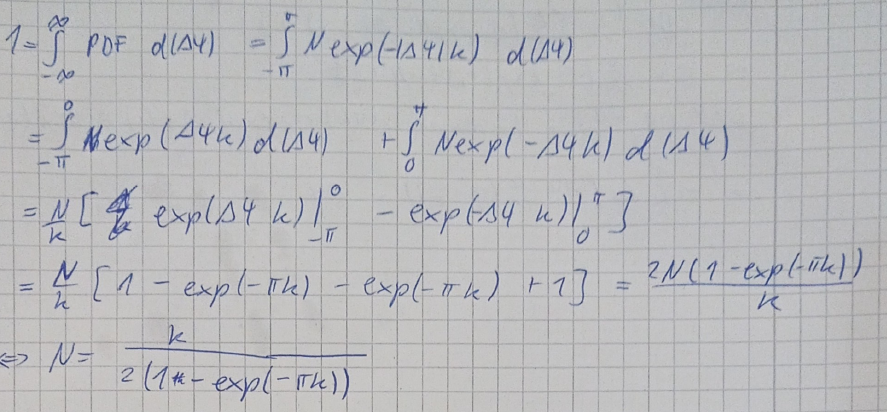 1 = ∫_{-∞}^{∞} PDF d(Δφ) = ∫_{-π}^{π} N exp(-|Δφ|k) d(Δφ)
= ∫_{-π}^{0} N exp(Δφk) d(Δφ) + ∫_{0}^{π} N exp(-Δφk) d(Δφ)
= N/k [ exp(Δφ k)|_{-π}^{0} - exp(-Δφ k)|_{0}^{π} ]
= N/k [ 1 - exp(-πk) - exp(-πk) + 1 ] = 2N(1 - exp(-πk))/k
⇔ N = k/(2(1 - exp(-πk)))